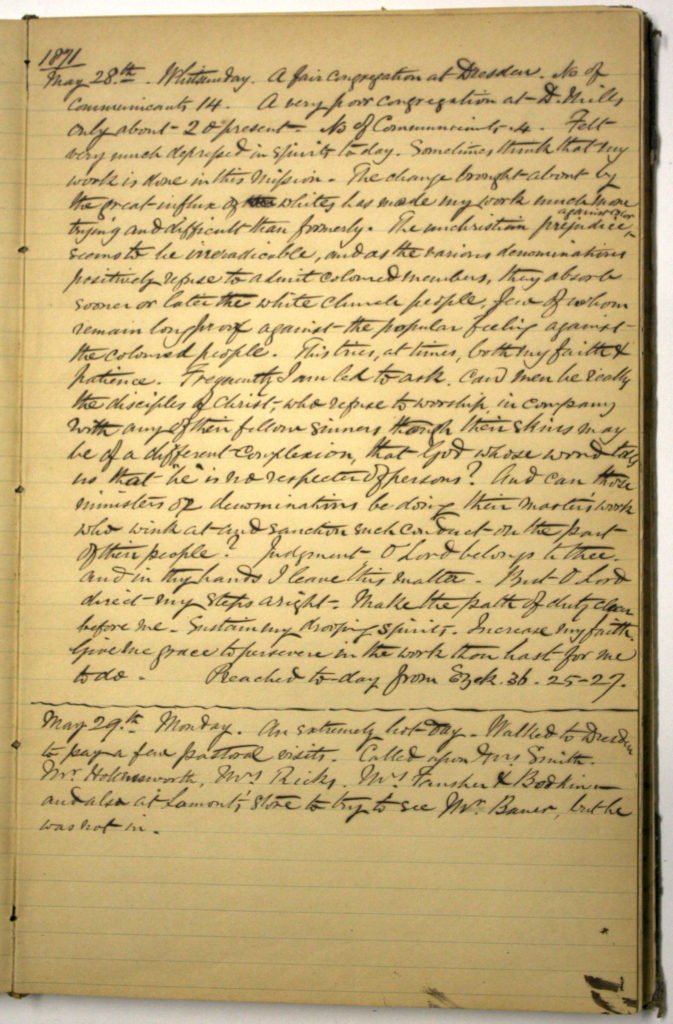 1871
May 28th. Whitsunday. A fair congregation at Dresden. No of
communicants 14. A very poor congregation at D. Mills
only about 20 present. No of Communicants 4. Felt
very much depressed in spirits to day. Sometimes think that my
work is done in this Mission. The change brought about by
the great influx of whites has made my work much more
trying and difficult than formerly. The unchristian prejudice against color
seems to be irreradicable, and as the various denominations
positively refuse to admit coloured members, they absorb
sooner or later the white church people, few of whom
remain long proof against the popular feeling against
the coloured people. This tries, at times, both my faith &
patience. Frequently I am led to ask. Can men be really
the disciples of Christ, who refuse to worship, in company
with any of their fellow sinners though their skins may
be of a different complexion, that God whose word tells
us that "he is no respecter of persons"? And can those
ministers of denominations be doing their master's work
who wink at and sanction such conduct on the part
of their people? Judgment O Lord belongs to thee.
and in thy hands I leave this matter. But O Lord
direct my steps aright. Make the path of duty clear
before me. Sustain my drooping spirits. Increase my faith.
Give me grace to persevere in the work thou hast for me
to do. Preached to-day from Ezek. 36. 25-27.
May 29th. Monday. An extremely hot day. Walked to Dresden
to pay a few pastoral visits. Called upon Mrs Smith.
Mr. Holdensworth, Mrs Ricks, Mrs Fansher & Bodkin
and also at Lamont's store to try to see Mr. Bauer, but he
was not in.